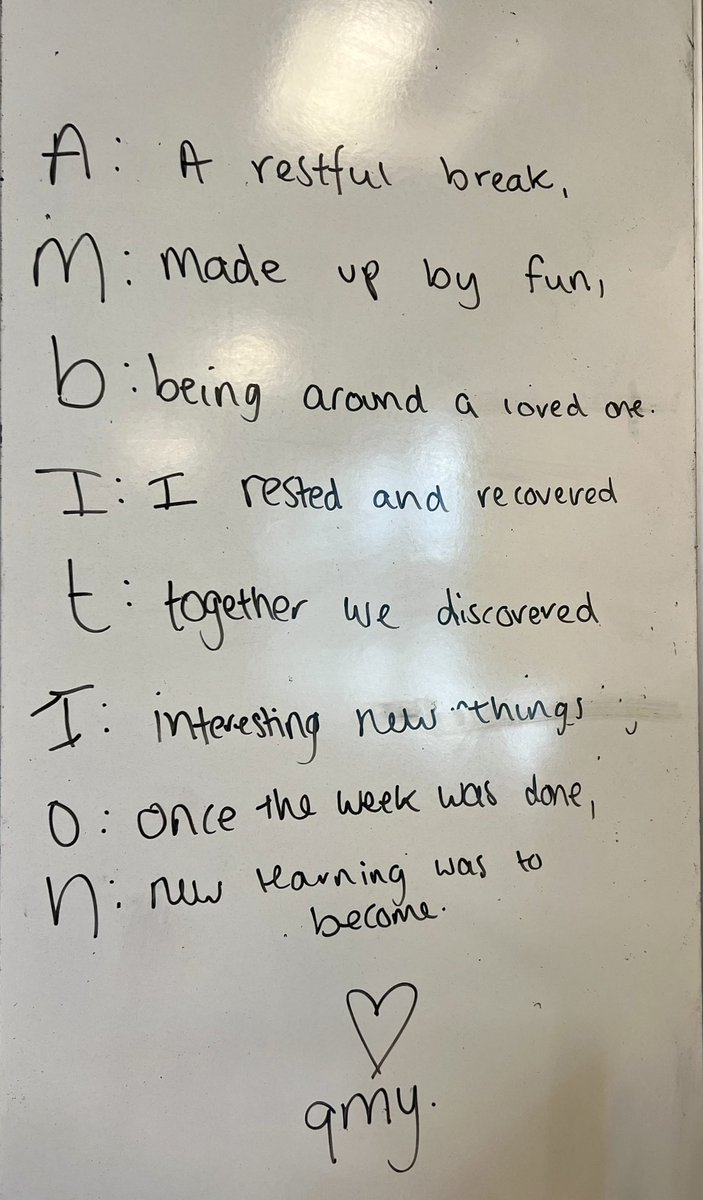 A: A restful break,
M: Made up by fun,
b: being around a loved one.
I: I rested and recovered
t: together we discovered
I: interesting new things,
O: Once the week was done,
n: new learning was to
become.
♡
amy.